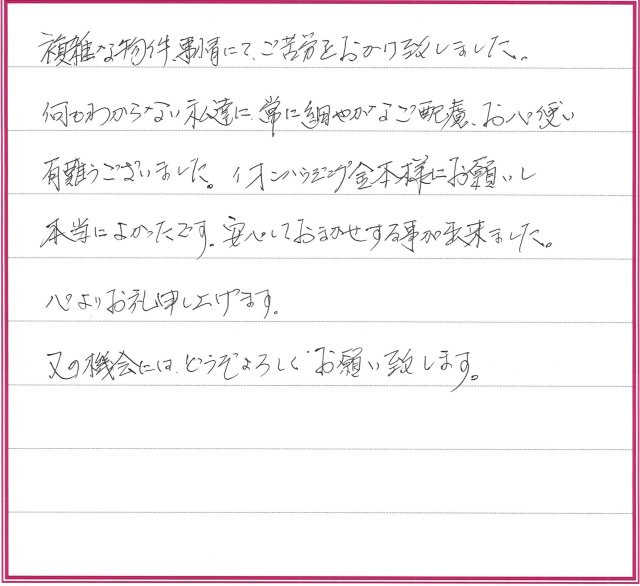 複雑な物件、事情にて、ご苦労をおかけ致しました。
何もわからない私達に、常に細やかなご配慮、お心使い
有難うございました。イオンハウジング金本様にお願いし
本当によかったです。安心しておまかせする事が出来ました。
心よりお礼申し上げます。
又の機会には、どうぞよろしくお願い致します。